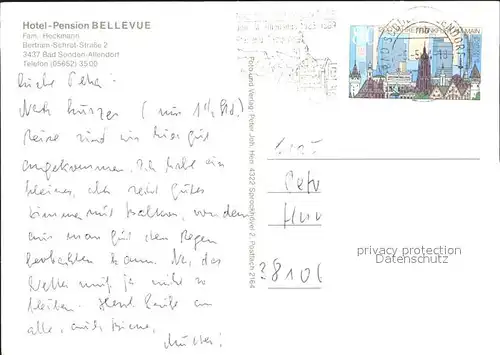 Hotel-Pension BELLEVUE
Fam. Heckmann
Bertram-Schrot-Straße 2
3437 Bad Sooden-Allendorf
Telefon (05652) 3500
Nach kurzer (nur 1½ Std.)
Reise sind wir hier gut
angekommen. Ich habe ein
kleines, aber recht gutes
Zimmer mit Balkon, von dem
aus man gut den Regen
beobachten kann. Na, das
Wetter muß ja nicht so
bleiben. Herzl. Grüße an
alle, auch
Mutter!
Foto und Verlag Peter Joh. Hen 4322 Sprockhövel 2, Postfach 2164
FRANKFURT AM MAIN
privacy protection
Datenschutz